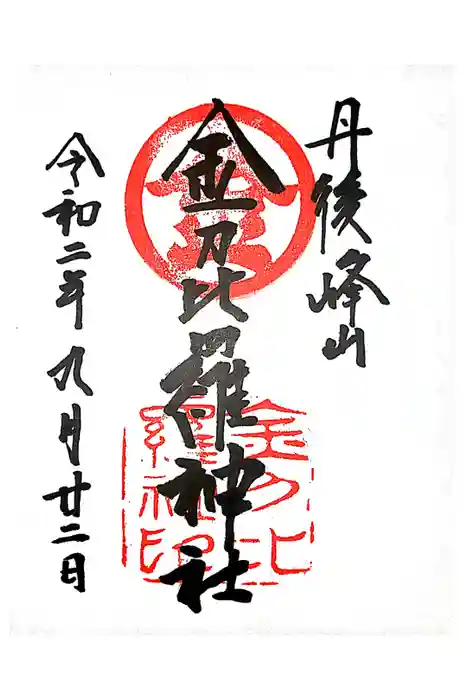 丹後峰山
金刀比羅神社
令和二年九月廿二日
金刀比
羅社印